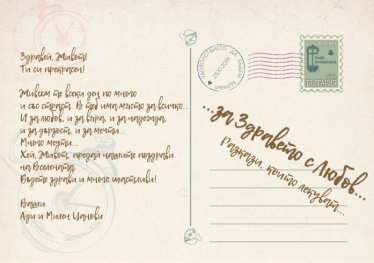 Здравей, Живот!
Ти си прекрасен!
Живеем те всеки ден по много
и със страст. В теб има място за всичко...
И за любов, и за вяра, и за надежда,
и за дързост, и за мечти...
Много мечти...
Хей, Живот, предай нашите поздрави
на Вселената.
Бъдете здрави и много щастливи!
Ваши
Ади и Милен Цанови
20.10.2019
...за Здравето с Любов...
Разкази, които лекуват...